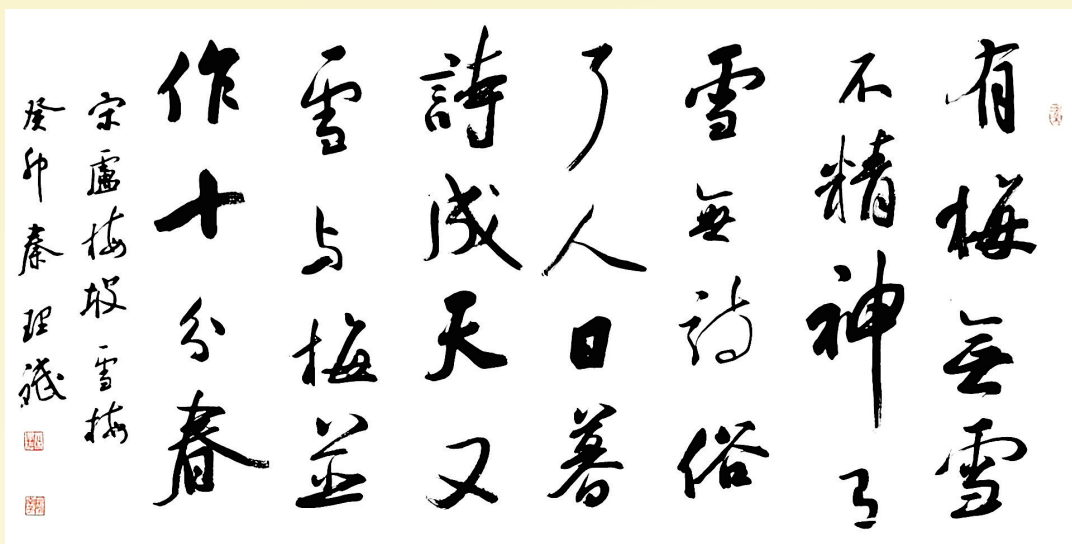 有梅無雪
不精神有
雪無詩俗
了人日暮
詩成天又
雪与梅並
作十分春
宋盧梅坡雪梅
癸卯秦理斌